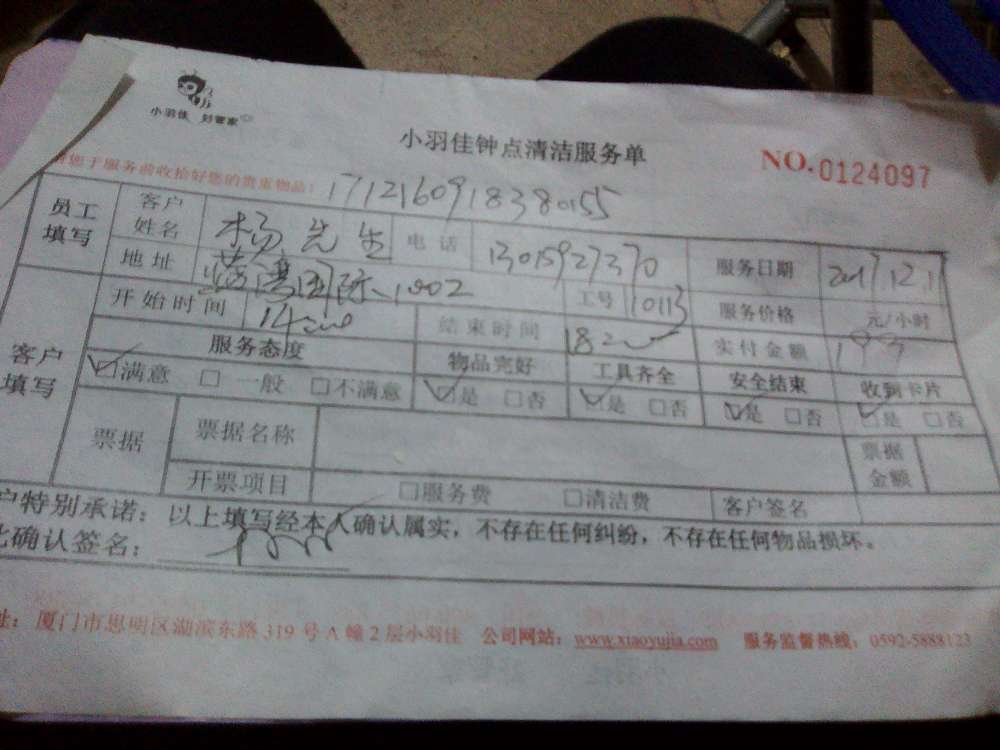 小羽佳 好管家
小羽佳钟点清洁服务单
NO.0124097
您于服务前收拾好您的贵重物品!
17121609183380155
员工填写 客户姓名 杨先生 电话 13015927370 服务日期 2017.12.17
地址 蓝湾国际1002 工号 10113 服务价格 元/小时
开始时间 1400 结束时间 1820 实付金额 193
客户填写 服务态度 物品完好 工具齐全 安全结束 收到卡片
☑满意 □一般 □不满意 ☑是 □否 ☑是 □否 ☑是 □否 ☑是 □否
票据 票据名称 票据金额
开票项目 □服务费 □清洁费 客户签名
户特别承诺：以上填写经本人确认属实，不存在任何纠纷，不存在任何物品损坏。
此确认签名：
址：厦门市思明区湖滨东路319号A幢2层小羽佳 公司网站：www.xiaoyujia.com 服务监督热线：0592-5888123